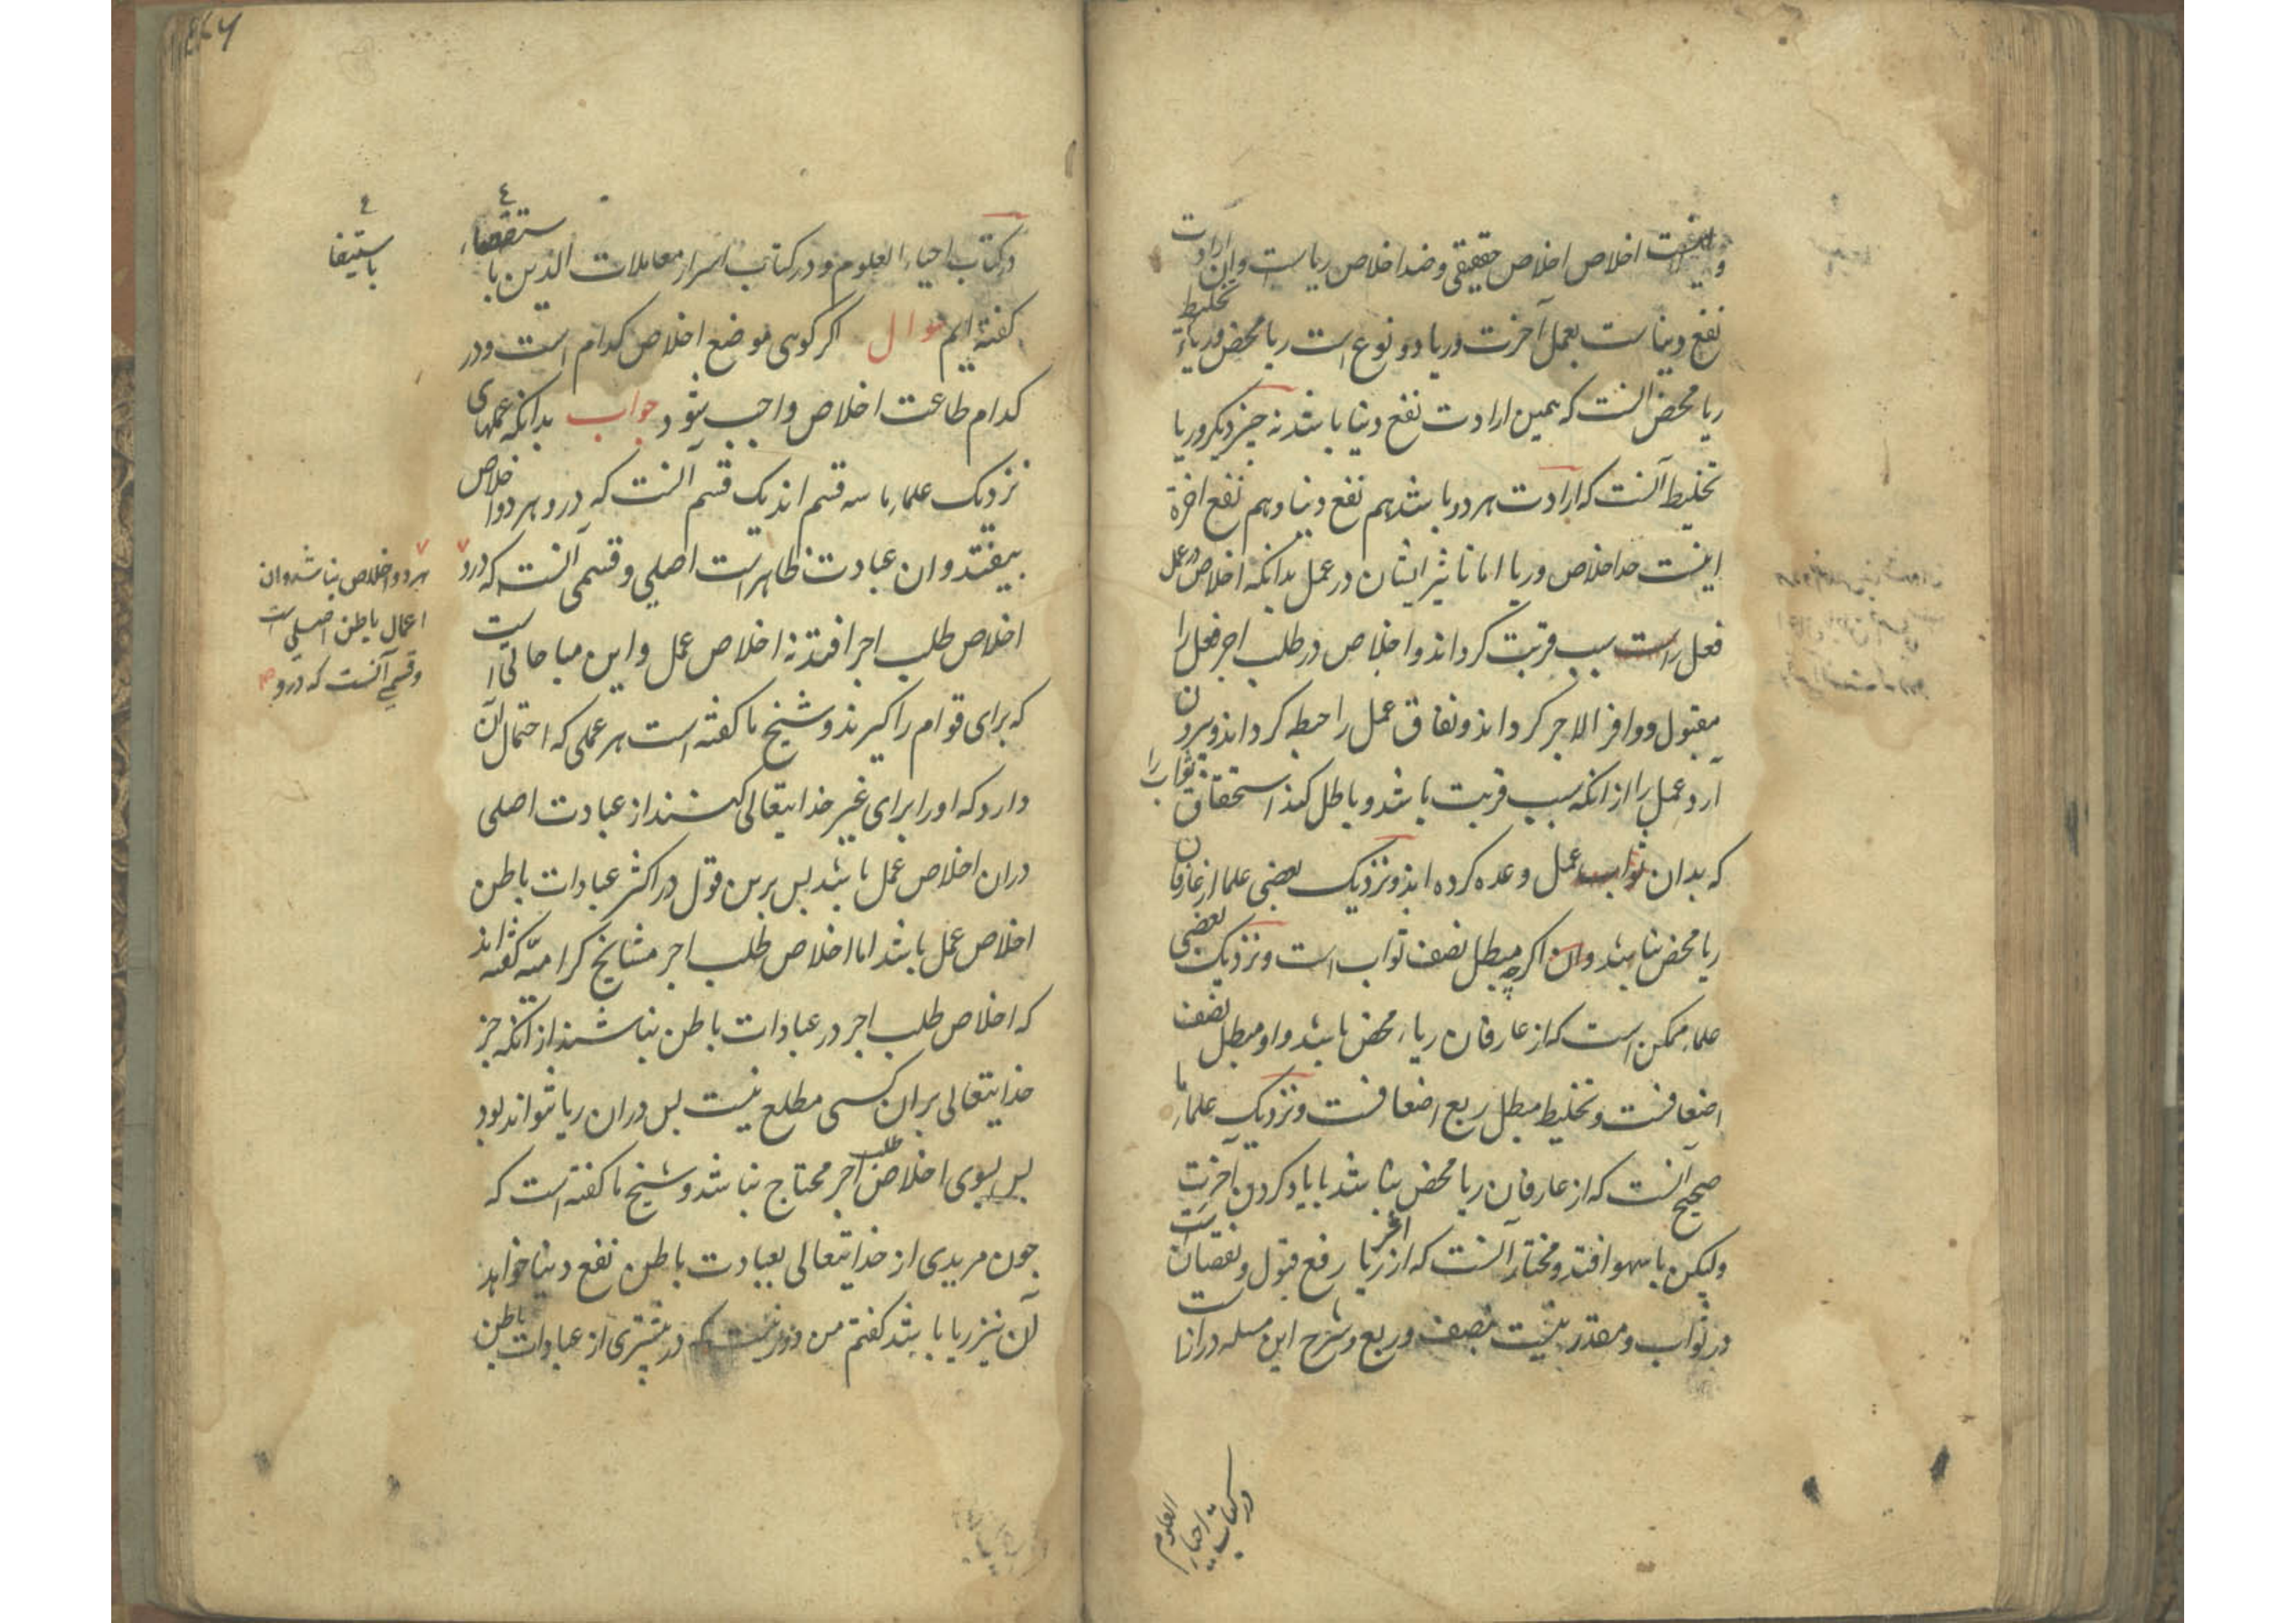 اخلاص اخلاص حقیقی و ضد اخلاص ریاست وان ارادت
نفع دنیاست بعمل آخرت و ریا دو نوع است ریا محض و ریاء تخلیط
ریا محض آنست که همین ارادت نفع دنیا باشد نه چیز دیکر و ریا
تخلیط آنست که ارادت هر دو باشد هم نفع دنیا و هم نفع اخرة
اینست حد اخلاص و ریا اما تاثیر ایشان در عمل بدانکه اخلاص در عمل
فعل را سبب قربت کرداند و اخلاص در طلب اجر فعل را
مقبول و وافر الاجر کرداند و نفاق عمل را حبطه کرداند و بیرون
آرد عمل را از انکه سبب قربت باشد و باطل کند استحقاق ثواب را
که بدان عمل وعده کرده اند و نزدیک بعضی علما از عارفان
ریا محض نباشد وان اکرچه مبطل نصف ثواب است و نزدیک بعضی
علماء ممکن است که از عارفان ریاء محض باشد و او مبطل نصف
اضعافست و تخلیط مبطل ربع اضعافست و نزدیک علماء ما
صحیح آنست که از عارفان ریا محض نباشد با یاد کردن آخرت
ولیکن با سهو افتد و مختار آنست که اثر ریا رفع قبول و نقصان است
در ثواب و مقدر نیست بنصف و ربع و شرح این مسله درازا ست
در کتاب احیاء العلوم
در کتاب احیاء العلوم و در کتاب اسرار معاملات الدین با ستقصاء
باستیفا
کفته ایم سوال اکر کوی موضع اخلاص کدام است و در
کدام طاعت اخلاص واجب شود جواب بدانکه عملهای
نزدیک علماء ما سه قسم اند یک قسم آنست که درو هر دو اخلاص
بیفتد وان عبادت ظاهر است اصلی و قسمی آنست که درو
هر دو اخلاص نباشد وان
اعمال باطن اصلی است
و قسمی آنست که درو
اخلاص طلب اجر افتد نه اخلاص عمل و این مباحاتی است
که برای قوام را کیرند و شیخ ما کفته است هر عملی که احتمال آن
دارد که او را برای غیر خدایتعالی کنند از عبادت اصلی
دران اخلاص عمل باشد پس برین قول در اکثر عبادات باطن
اخلاص عمل باشد اما اخلاص طلب اجر مشایخ کرامیه کفته اند
که اخلاص طلب اجر در عبادات باطن نباشند از انکه جز
خدایتعالی بران کسی مطلع نیست پس دران ریا نتواند بود
پس بسوی اخلاص طلب اجر محتاج نباشد و شیخ ما کفته است که
چون مریدی از خدایتعالی بعبادت باطن نفع دنیا خواهد
آن نیز ریا باشد کفتم من دور نیست که در بیشتری از عبادات باطن